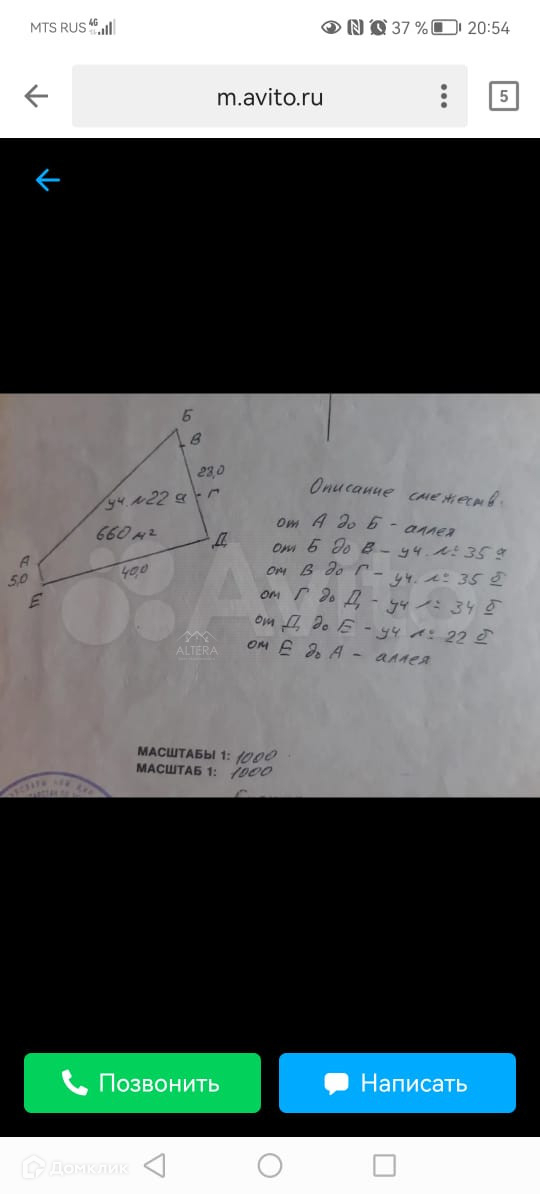 MTS RUS 4G 37 % 20:54
m.avito.ru 5
Б
В
23,0
уч. №22 а Г
660 м²
Д
А
5,0
40,0
Е
Описание смежеств.
от А до Б - аллея
от Б до В - уч. № 35 а
от В до Г - уч. № 35 б
от Г до Д - уч № 34 б
от Д до Е - уч. № 22 б
от Е до А - аллея
Avito
ALTERA
МАСШТАБЫ 1: 1000
МАСШТАБ 1: 1000
Позвонить Написать
Домклик